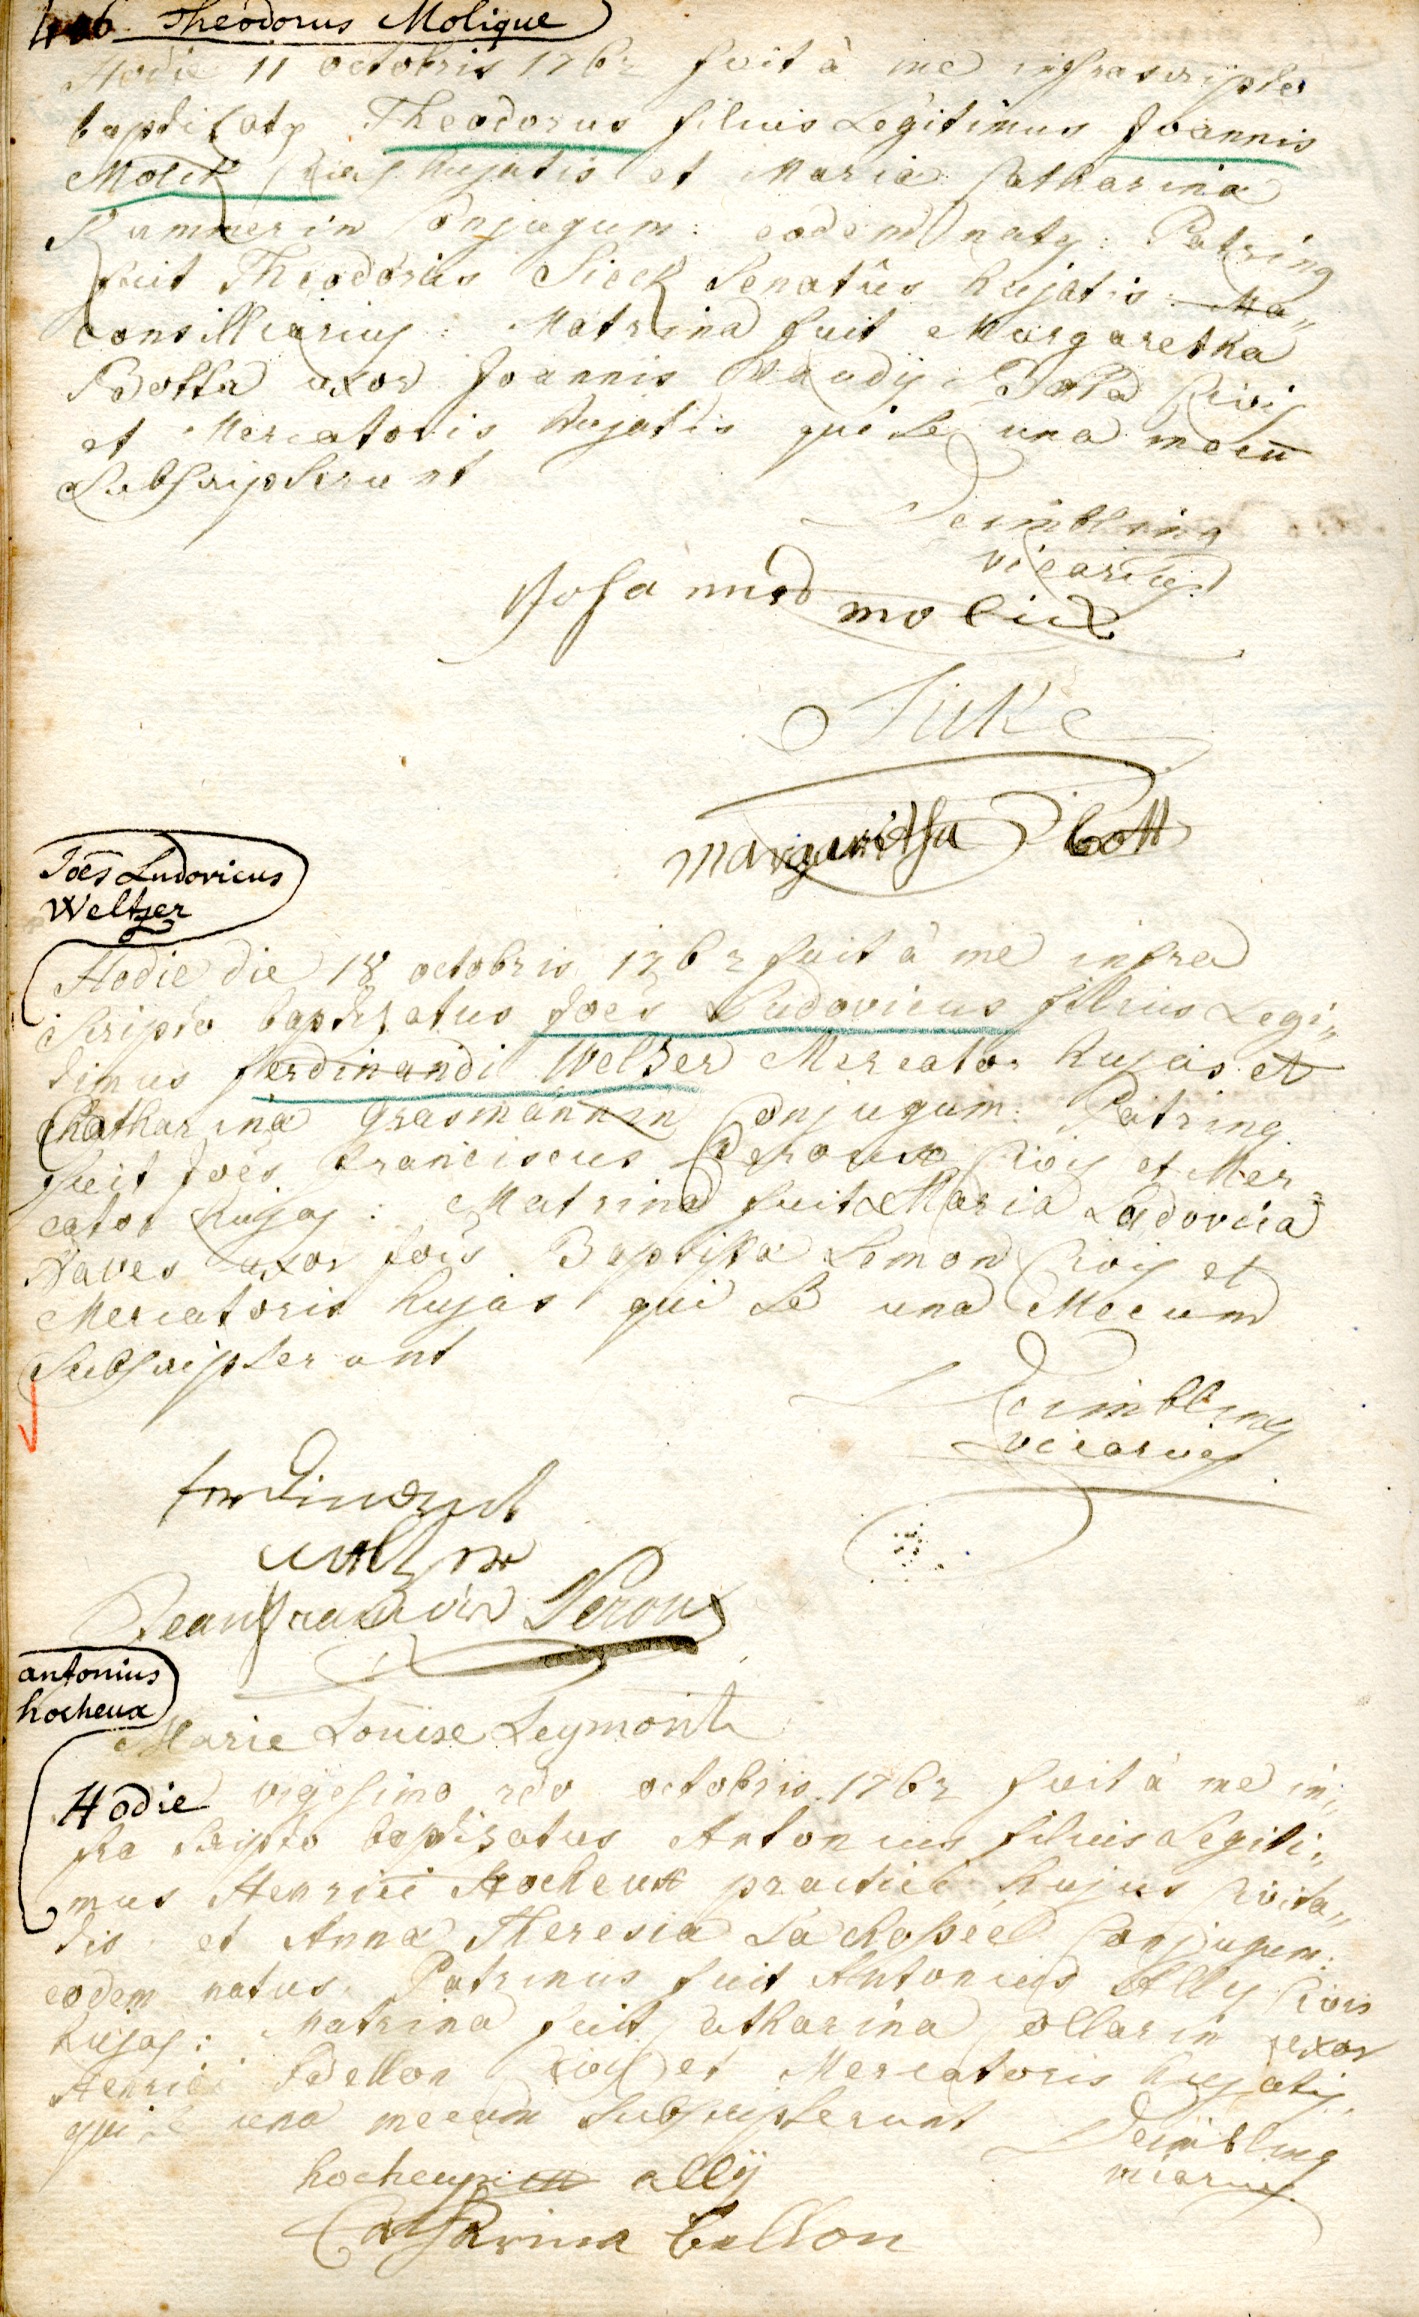 406 Theodorus Molique
Hodie 11 octobris 1762 fuit à me infrascripto
baptizatq Theodorus filius Legitimus Joannis
Molik Civis hujatis et Maria Catharina
Kummerin Conjugum: eodem natq: Patrinq
fuit Theodorus Sieck Senatûs hujatis Ma„
consilliarius: Matrina fuit Margaretha
Botta uxor Joannis Civis
et Mercatoris hujatis qui se una mecū
Subscripserunt
Deimbling
vicarius
Johannes molick
Sicke
margaretha bott
Joēs Ludovicus
Weltzer
Hodie die 18 octobris 1762 fuit à me infra
scripto baptizatus Joēs Ludovicus filius Legi„
timus ferdinandi Welzer Mercator hujas et
Chatharina Grasmännin Conjugum: Patrinq
fuit Joēs Franciscus Peroux Civis et Mer„
cator hujas: Matrina fuit Maria Ludovica
Naves uxor Joīs Baptista Lemon Civis et
Mercatoris hujas qui se una Mecum
Subscripserunt
Deimbling
vicarius
ferdinandt
weltzer
Jean francois Peroux
antonius
hocheux
Marie Louise Leymont
Hodie vigesimo 2do octobris 1762 fuit à me in„
fra scripto baptizatus Antonius filius Legiti„
mus Henrici Hocheux practici hujus Civita„
tis et Anna Theresia La Roßée Conjugum:
eodem natus. Patrinus fuit Antonius Ally Civis
hujas: Matrina fuit Catharina Collarin uxor
Henrici Bellon civis et Mercatoris hujatis,
qui se una mecum Subscripserunt
Deimbling
vicarius
hocheux ally
Catharina bellon